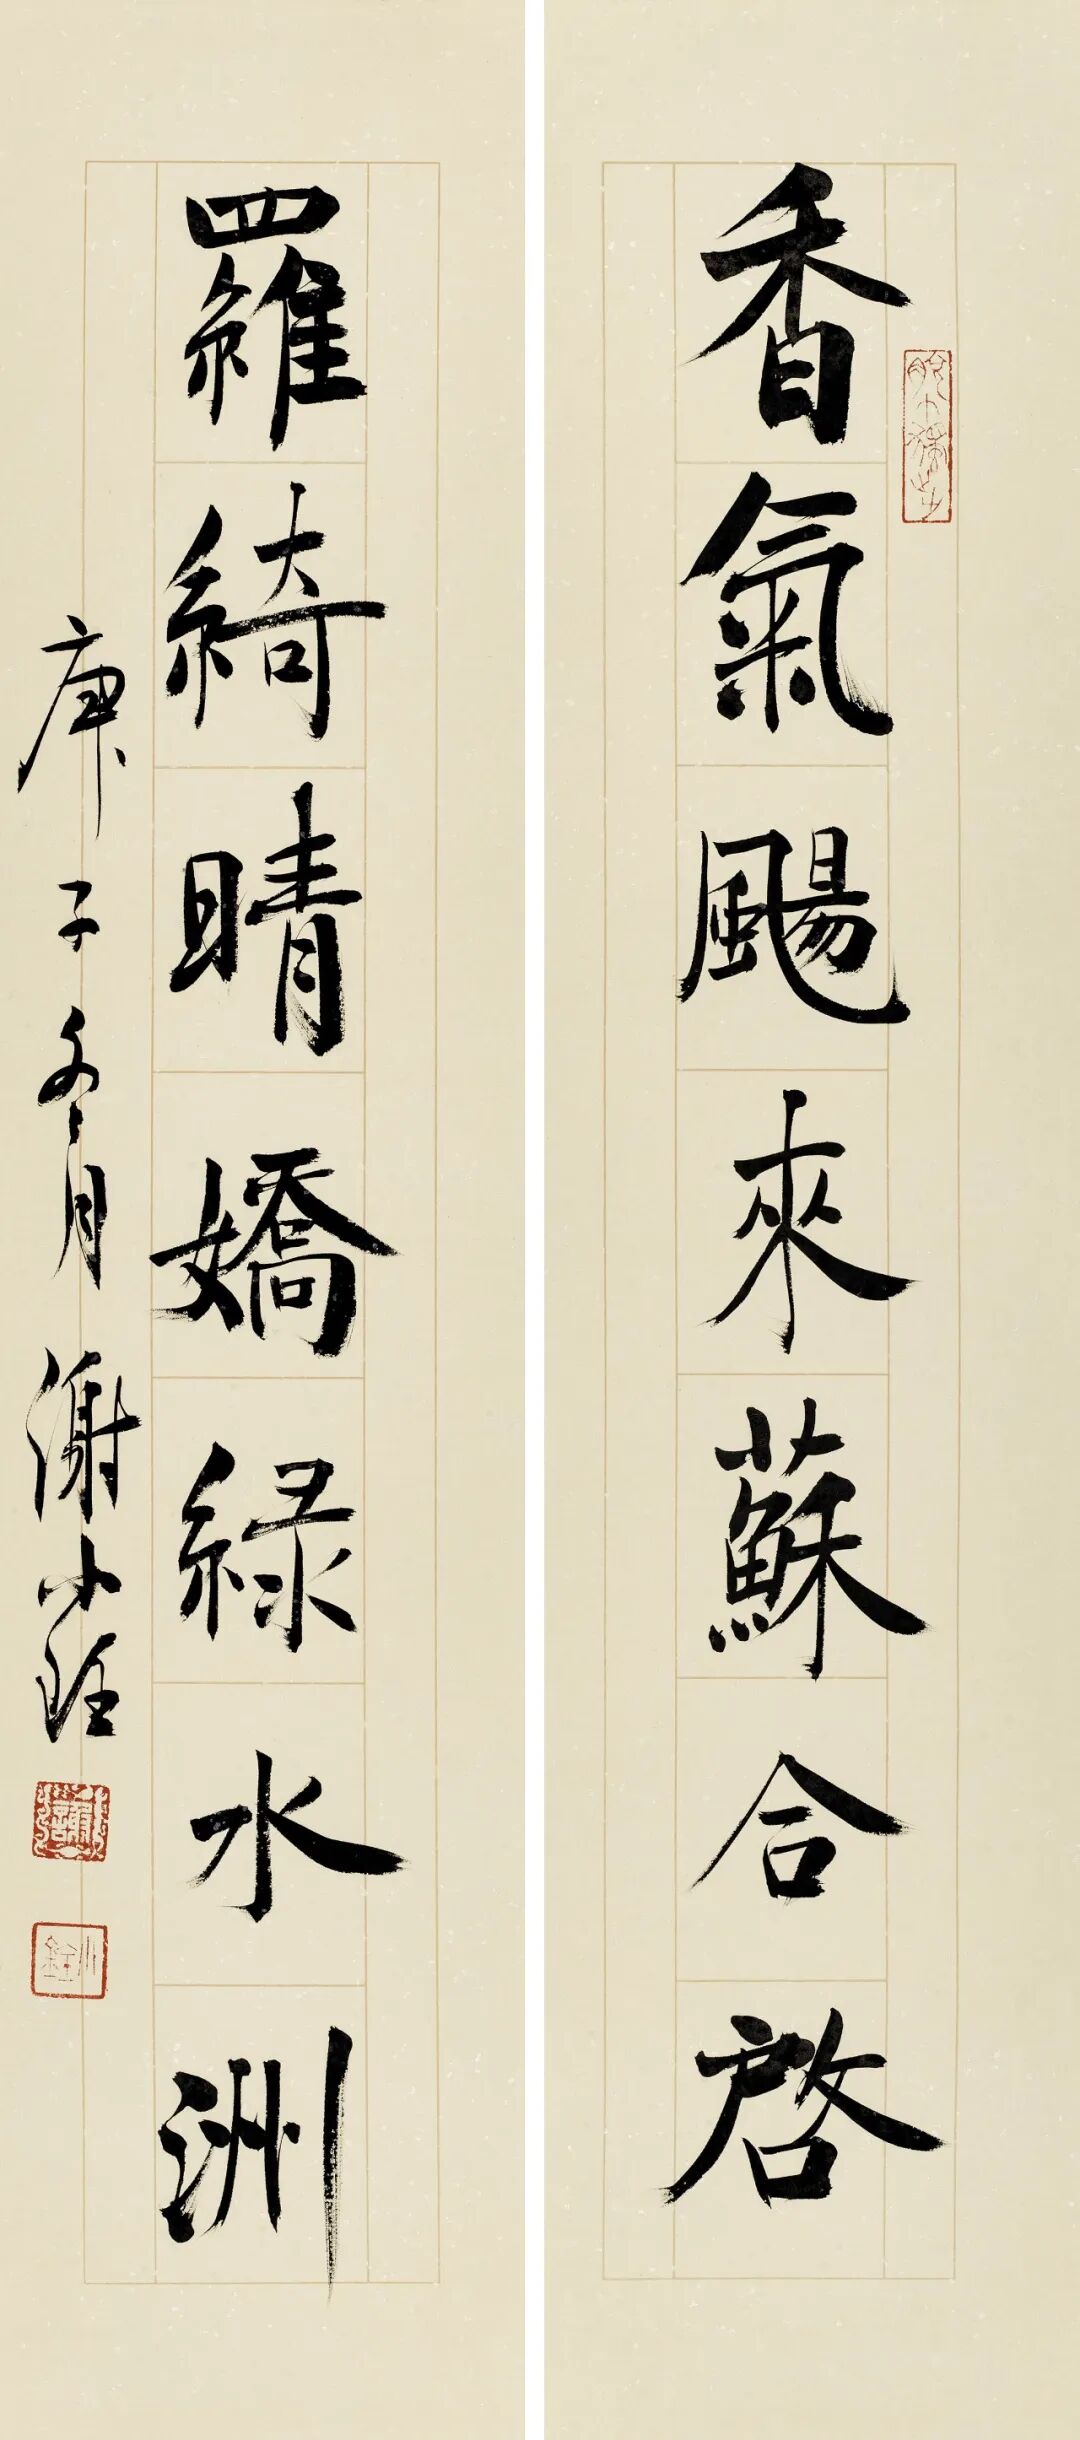 香氣颺來蘇合啓
羅綺晴嬌綠水洲
庚子冬月謝小銓